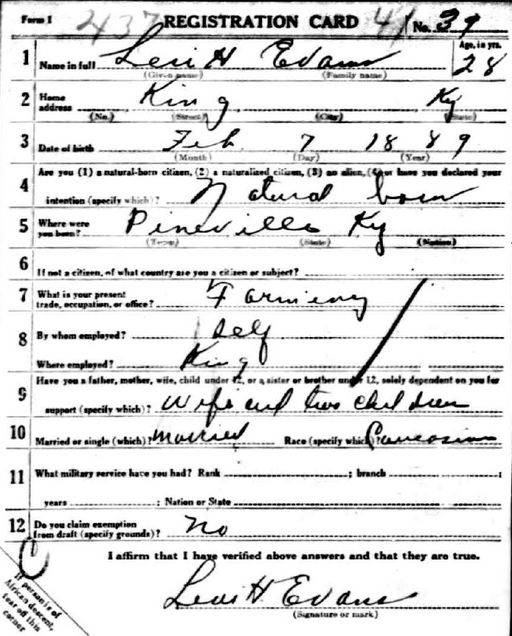 Form 1 437 REGISTRATION CARD 41 No. 39
1 Name in full Levi H Evans Age, in yrs. 28
(Given name) (Family name)
2 Home address King Ky
(No.) (Street) (City) (State)
3 Date of birth Feb 7 1889
(Month) (Day) (Year)
4 Are you (1) a natural-born citizen, (2) a naturalized citizen, (3) an alien, (4) or have you declared your
intention (specify which)? Natural born
5 Where were you born? Pineville Ky
(Town) (State) (Nation)
6 If not a citizen, of what country are you a citizen or subject?
7 What is your present trade, occupation, or office? Farming
8 By whom employed? Self
Where employed? King
9 Have you a father, mother, wife, child under 12, or a sister or brother under 12, solely dependent on you for
support (specify which)? Wife and two children
10 Married or single (which)? Married Race (specify which)? Caucasian
11 What military service have you had? Rank ; branch ;
years ; Nation or State
12 Do you claim exemption from draft (specify grounds)? No
I affirm that I have verified above answers and that they are true.
Levi H Evans
(Signature or mark)
If person is of
African descent,
tear off this
corner